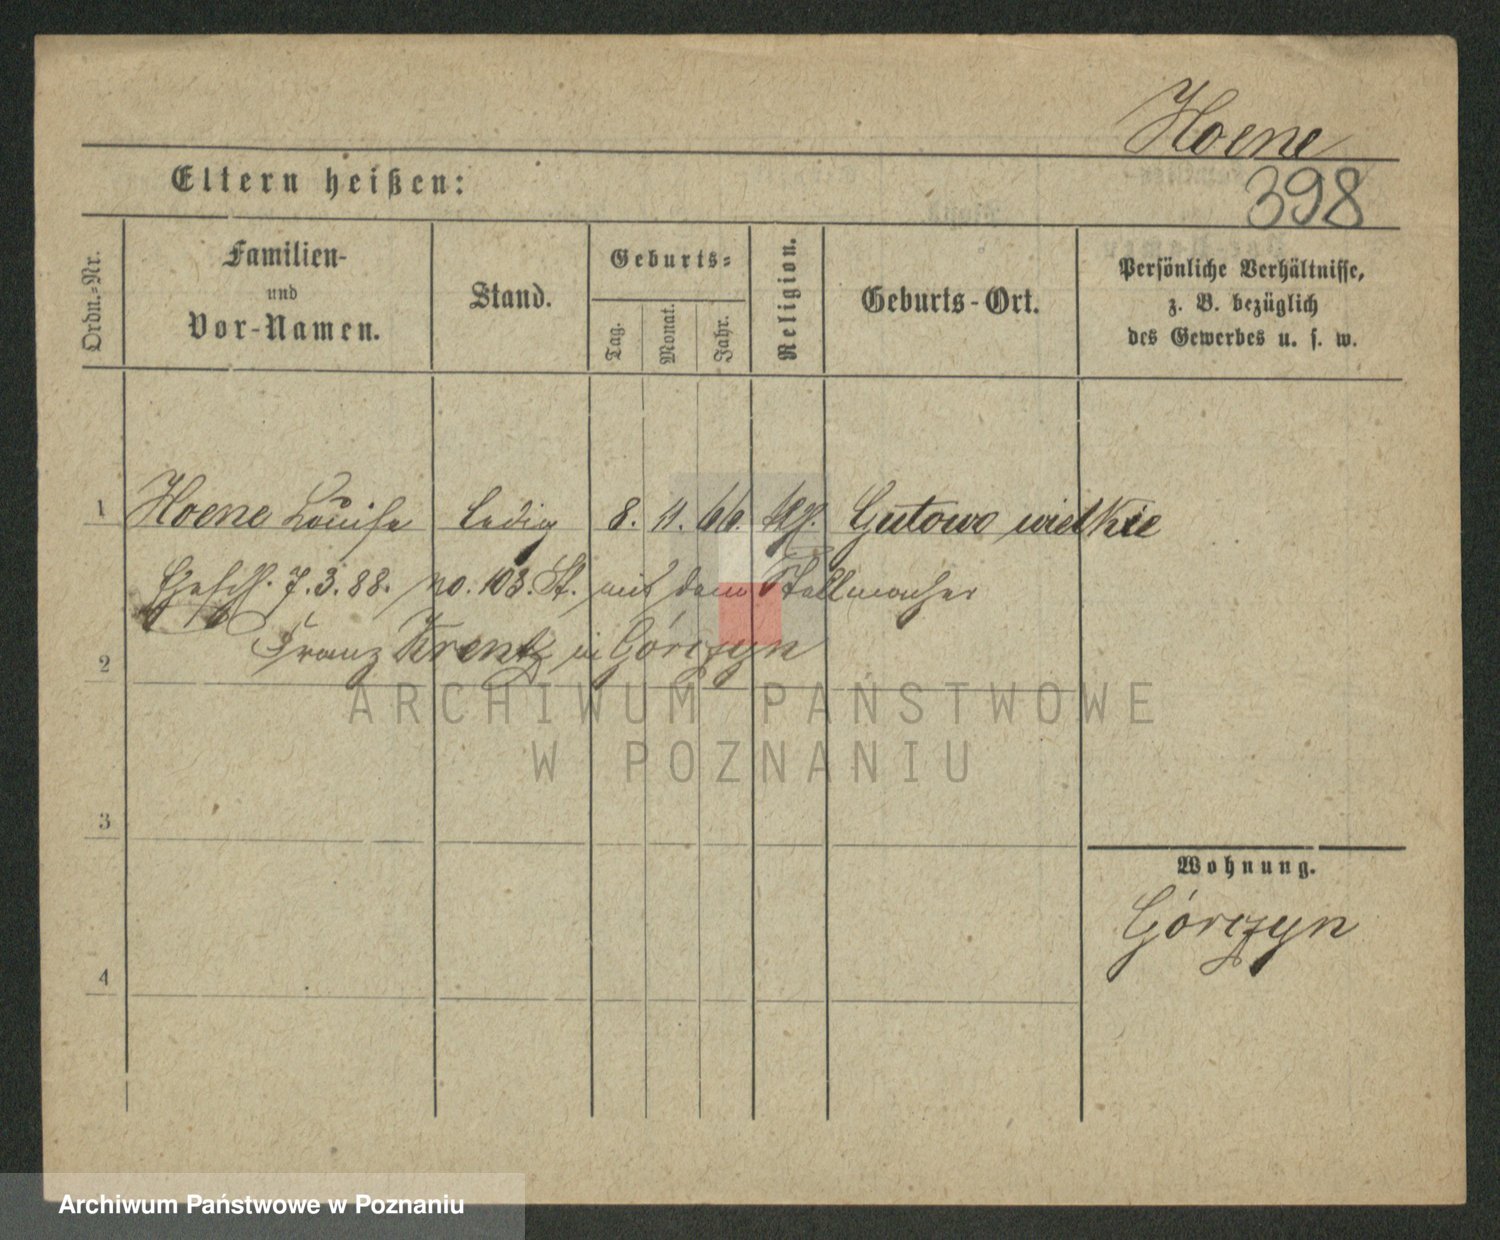 Hoene
Eltern heißen:
398
Ordn.-Nr.
Familien-
und
Vor-Namen.
Stand.
Geburts-
Tag.
Monat.
Jahr.
Religion.
Geburts-Ort.
Persönliche Verhältnisse,
z. B. bezüglich
des Gewerbes u. s. w.
1 Hoene Louise ledig 8. 11. 66. Gutowo wielkie
7.3.88. no. 103. St. mit dem Stellmacher
Franz Krentz in Górczyn
2
ARCHIWUM PAŃSTWOWE
W POZNANIU
3
Wohnung.
Górczyn
4
Archiwum Państwowe w Poznaniu